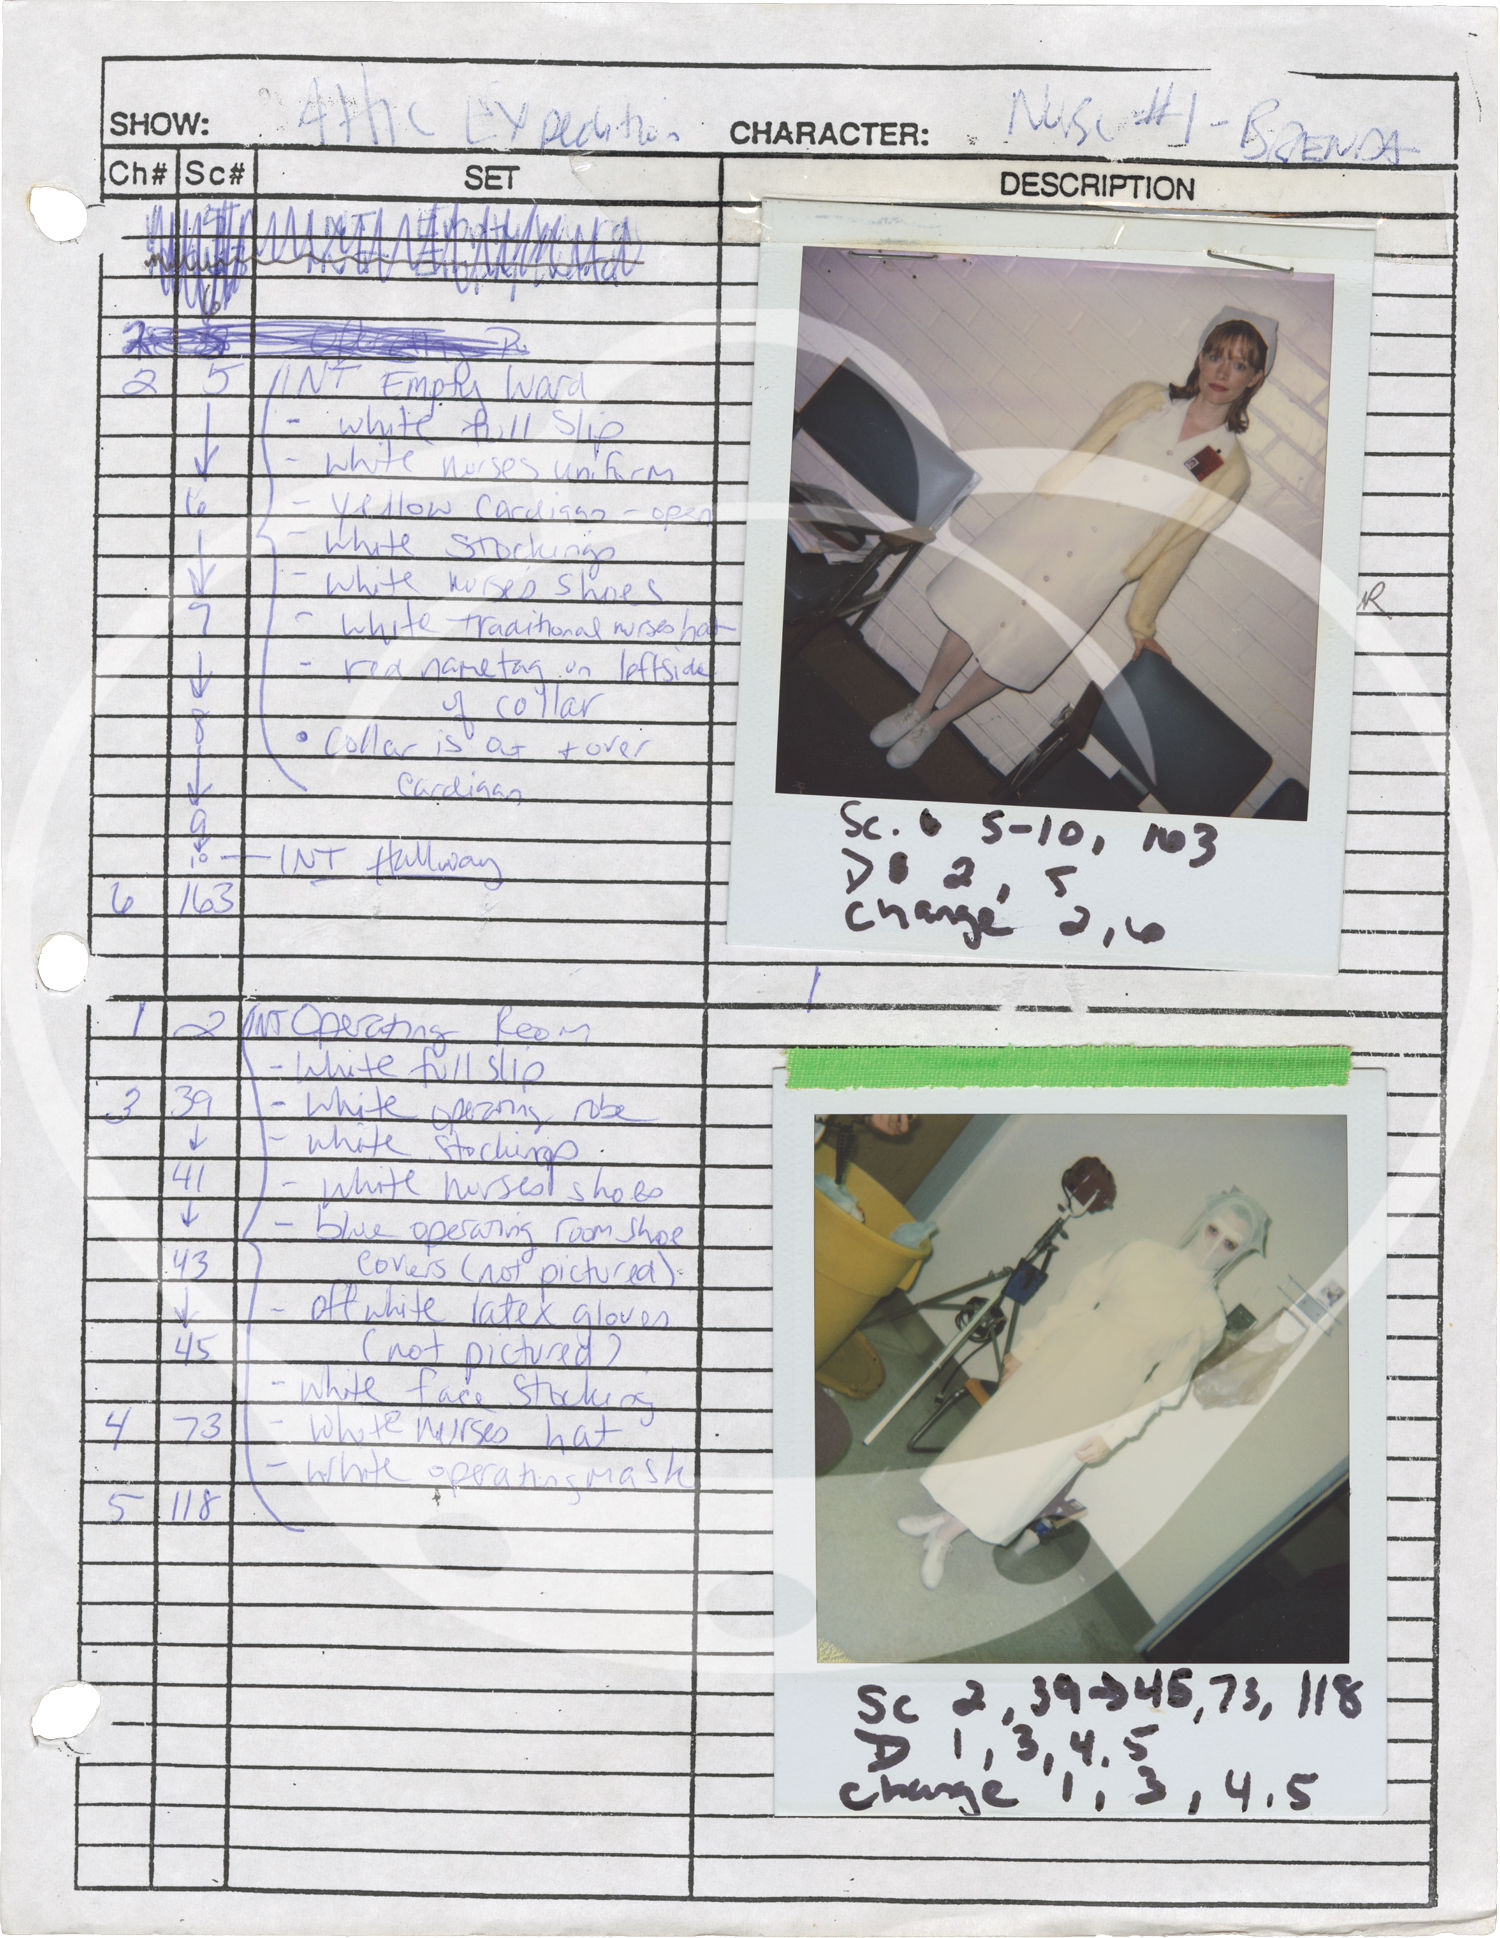 SHOW: Attic Expedition CHARACTER: Nurse #1 - BRENDA
Ch# Sc# SET DESCRIPTION
6
2 5 INT Empty Ward
- white full slip
- white nurses uniform
6 - yellow cardigan - open
- white stockings
- white nurses shoes
7 - white traditional nurses hat
- red nametag on leftside
of collar
8 • Collar is out + over
cardigan
9
10 — INT Hallway
6 163
Sc. 5-10, 163
D 2, 5
change 2, 6
1 2 INT Operating Room
- White full slip
3 39 - white operating robe
- white stockings
41 - white nurses shoes
- blue operating room shoe
43 covers (not pictured)
- off white latex gloves
45 (not pictured)
- white face stocking
4 73 - white nurses hat
- white operating mask
5 118
Sc 2, 39→45, 73, 118
D 1, 3, 4, 5
change 1, 3, 4, 5